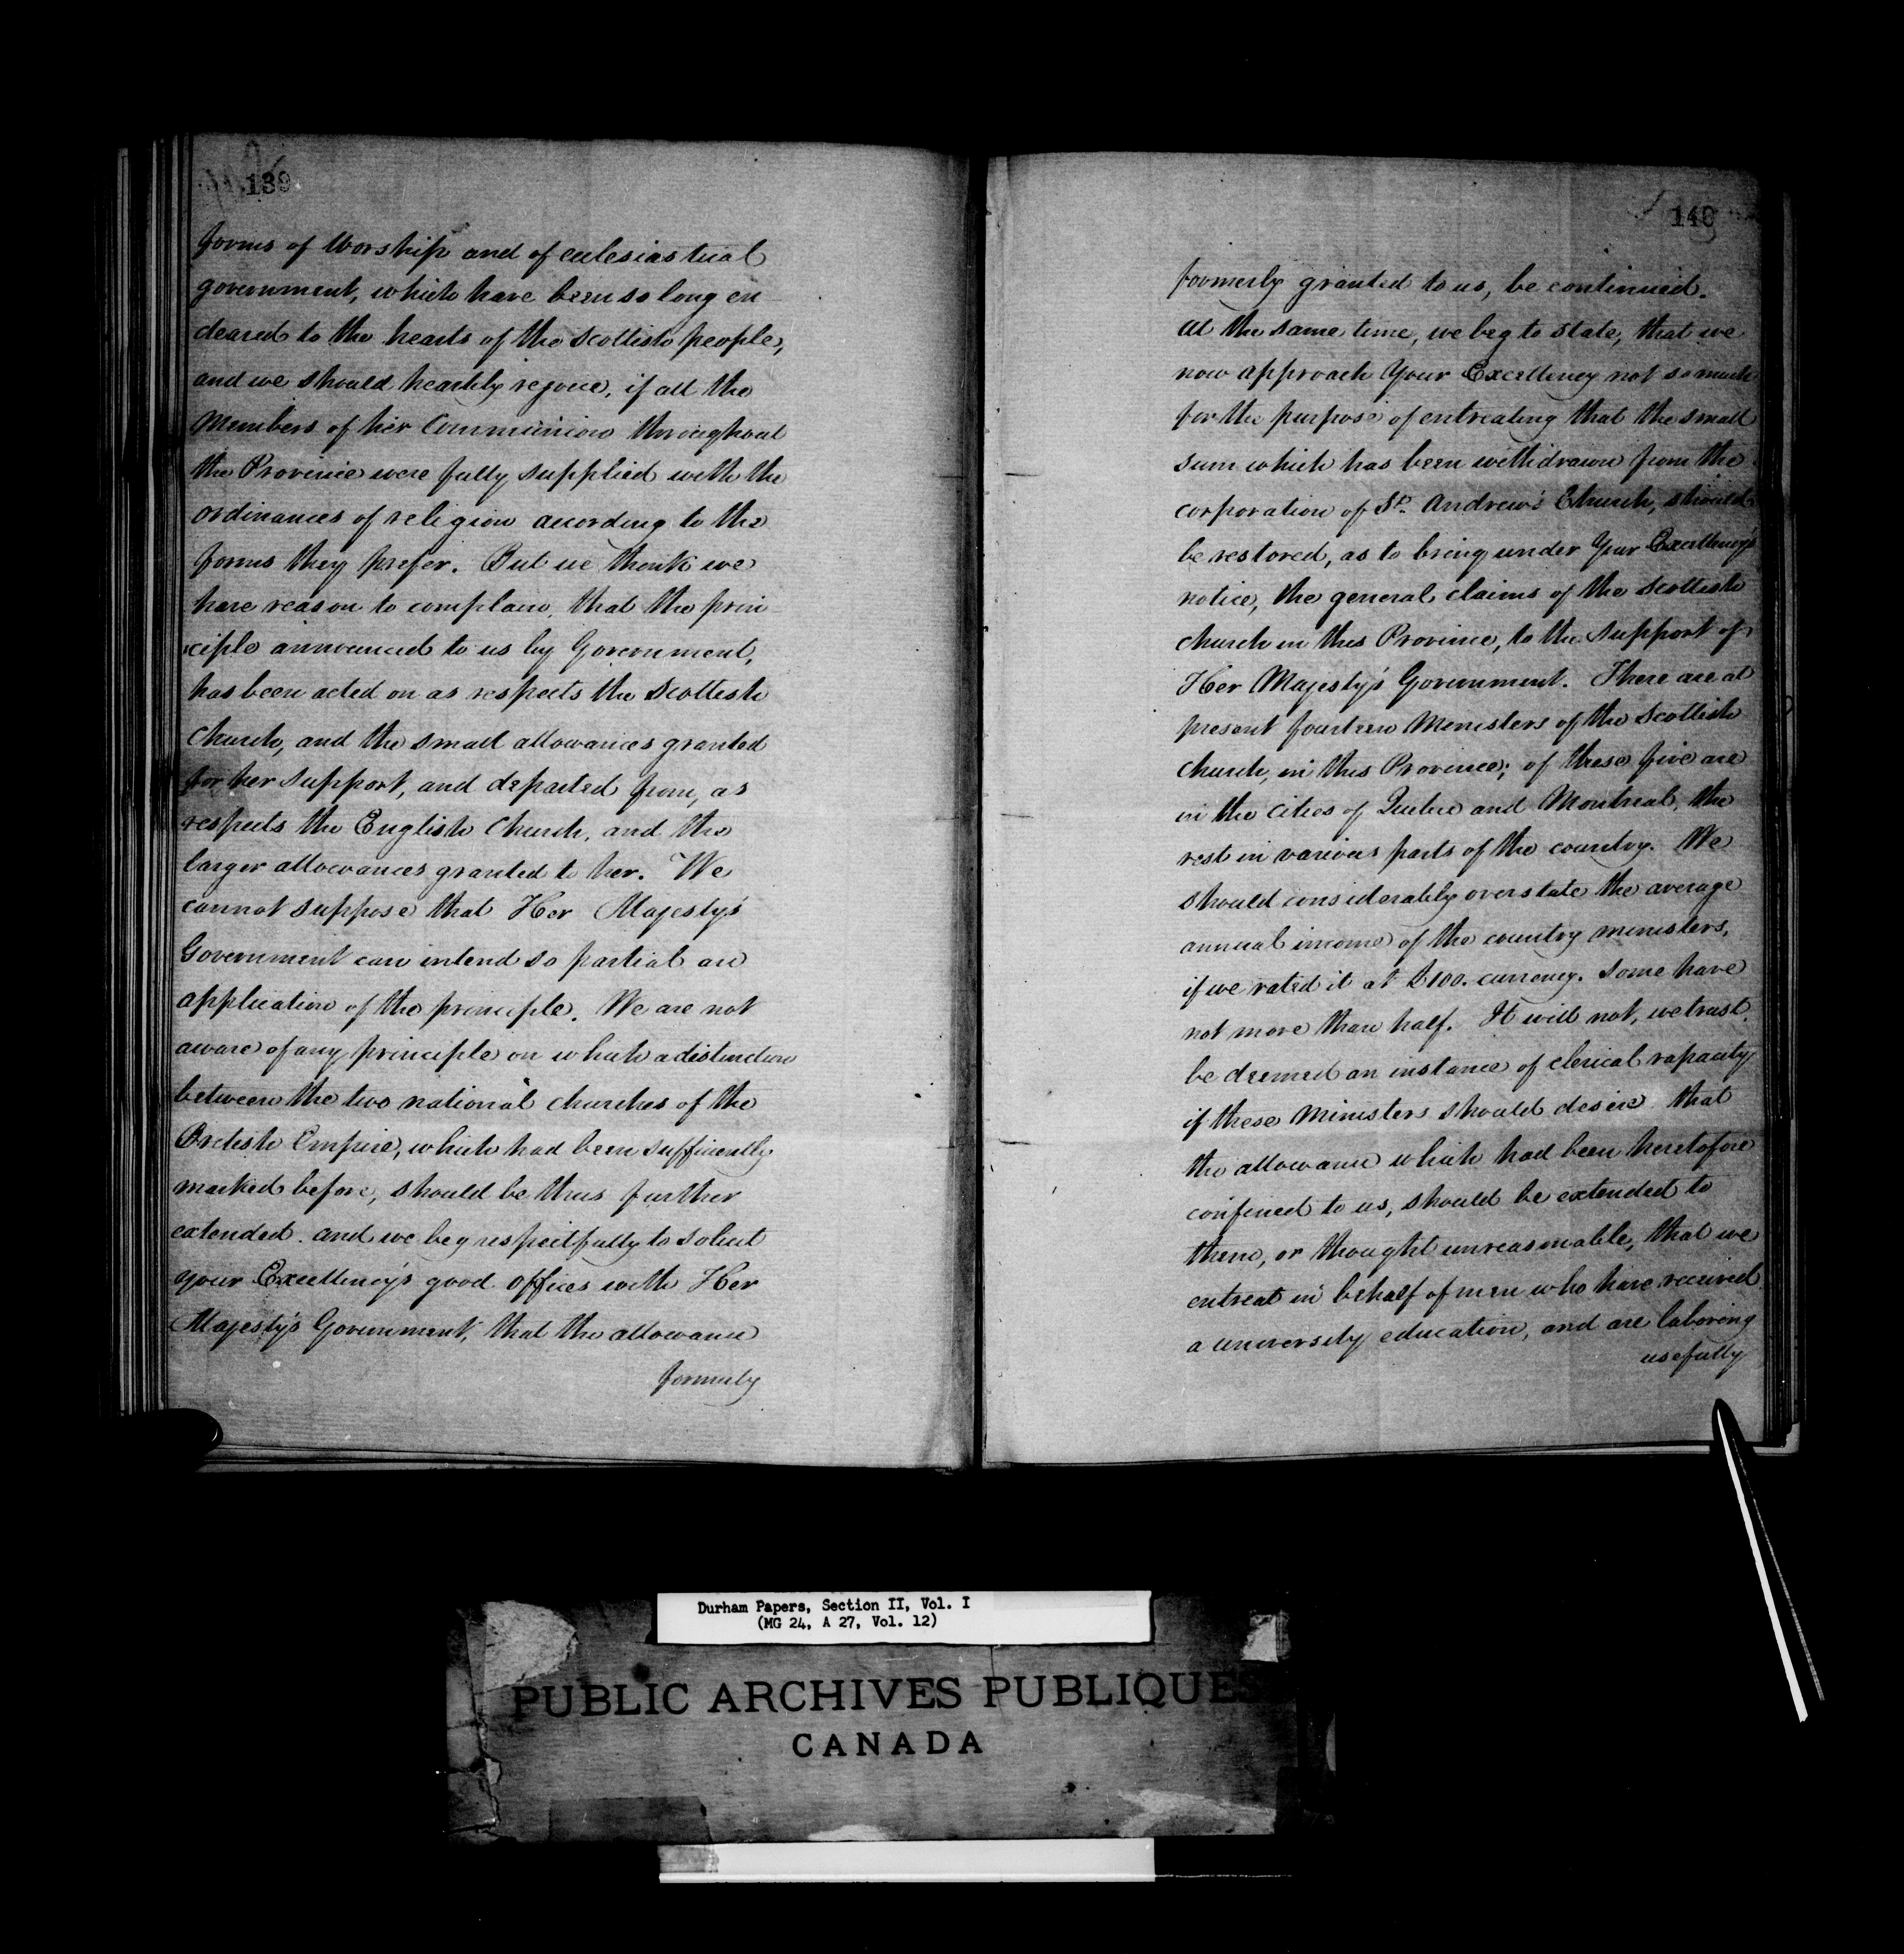 139
forms of Worship and of eclesiastical
government, which have been so long en
deared to the hearts of the Scottish people,
and we should heartily rejoice, if all the
Members of her Communion throughout
the Province were fully supplied with the
ordinances of religion according to the
forms they prefer. But we think we
have reason to complain, that the prin
ciple announced to us by Government,
has been acted on as respects the Scottish
Church, and the small allowances granted
for her support, and departed from, as
respects the English Church, and the
larger allowances granted to her. We
cannot suppose that Her Majesty's
Government can intend so partial an
application of the principle. We are not
aware of any principle on which a distinction
between the two national churches of the
British Empire, which had been sufficiently
marked before, should be thus further
extended. and we beg respectfully to solicit
your Excellency's good offices with Her
Majesty's Government, that the allowance
formerly
140
formerly granted to us, be continued.
At the same time, we beg to state, that we
now approach Your Excellency not so much
for the purpose of entreating that the small
sum which has been withdrawn from the
corporation of St. Andrew's Church, should
be restored, as to bring under Your Excellency's
notice, the general claims of the Scottish
church in this Province, to the support of
Her Majesty's Government. There are at
present fourteen Ministers of the Scottish
Church, in this Province; of these five are
in the cities of Quebec and Montreal, the
rest in various parts of the country. We
should considerably overstate the average
annual income of the country ministers,
if we rated it at £100. currency. Some have
not more than half. It will not, we trust,
be deemed an instance of clerical rapacity
if these Ministers should desire that
the allowance which had been heretofore
confined to us, should be extended to
them, or thought unreasonable, that we
entreat in behalf of men who have received
a university education, and are laboring
usefully
Durham Papers, Section II, Vol. I
(MG 24, A 27, Vol. 12)
PUBLIC ARCHIVES PUBLIQUES
CANADA